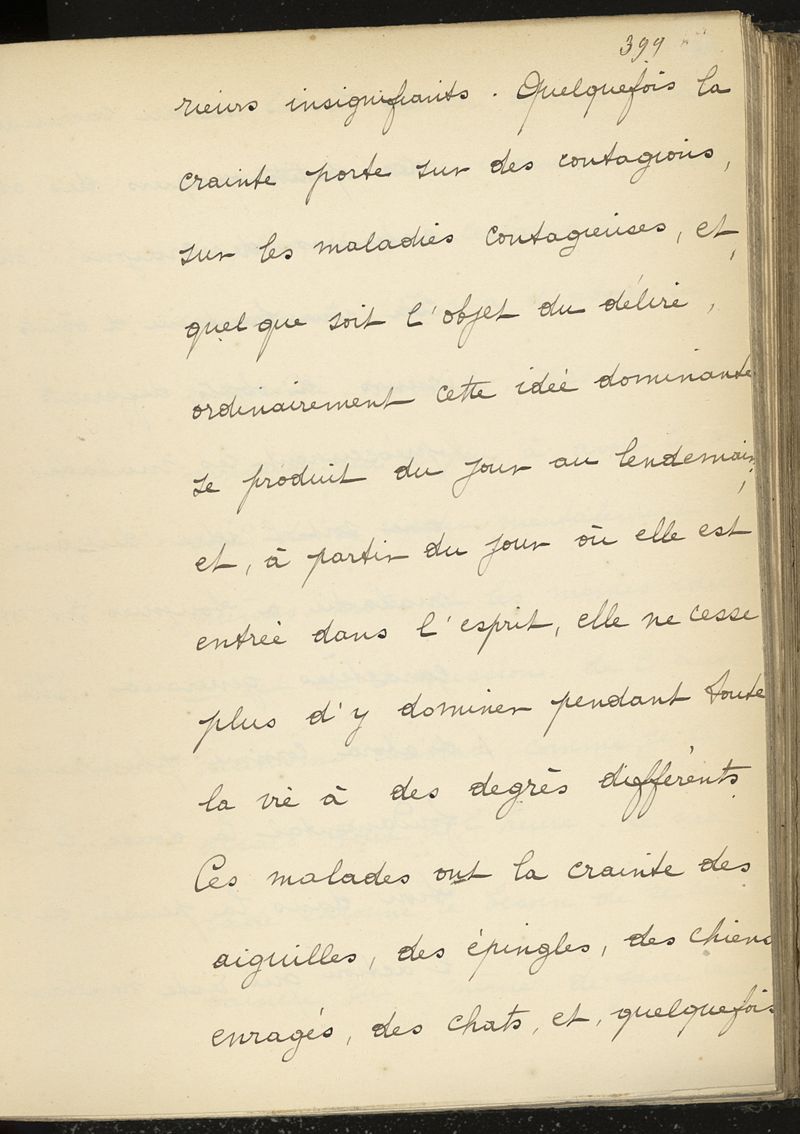 399
rieurs insignifiants. Quelquefois la
crainte porte sur des contagions,
sur les maladies contagieuses, et,
quel que soit l'objet du délire,
ordinairement cette idée dominante
se produit du jour au lendemain;
et, à partir du jour où elle est
entrée dans l'esprit, elle ne cesse
plus d'y dominer pendant toute
la vie à des degrés différents.
Ces malades ont la crainte des
aiguilles, des épingles, des chiens
enragés, des chats, et, quelquefois